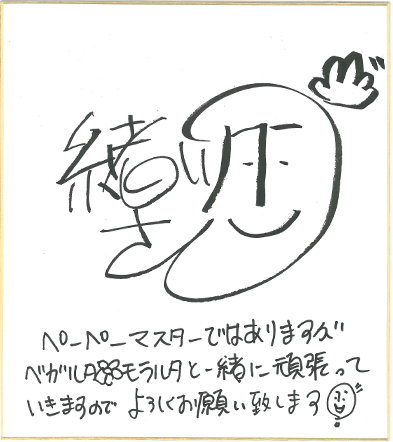 ペーペーマスターではありますが
ベガルタ モラルタと一緒に頑張って
いきますので よろしくお願い致します